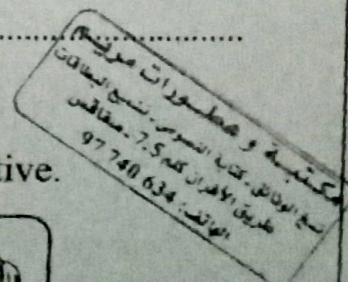 مكتبة و مطبورات مريم
نسخ الوثائق ـ كتابة النصوص ـ تشميع البطاقات
طريق الأفران كلم 7.5 ـ صفاقس
الهاتف: 97 740 634
tive.